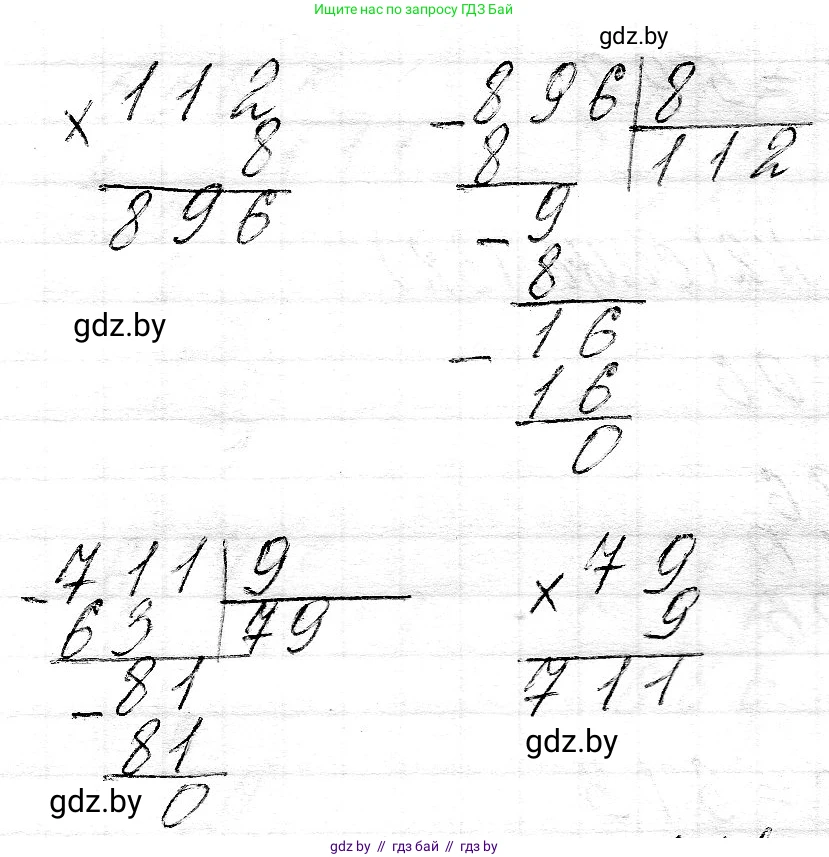 Ищите нас по запросу ГДЗ Бай
gdz.by
112
× 8
896
gdz.by
- 896 | 8
8 112
- 9
8
- 16
16
0
- 711 | 9
63 79
- 81
81
0
gdz.by
79
× 9
711
gdz.by
gdz by // гдз бай // гдз by